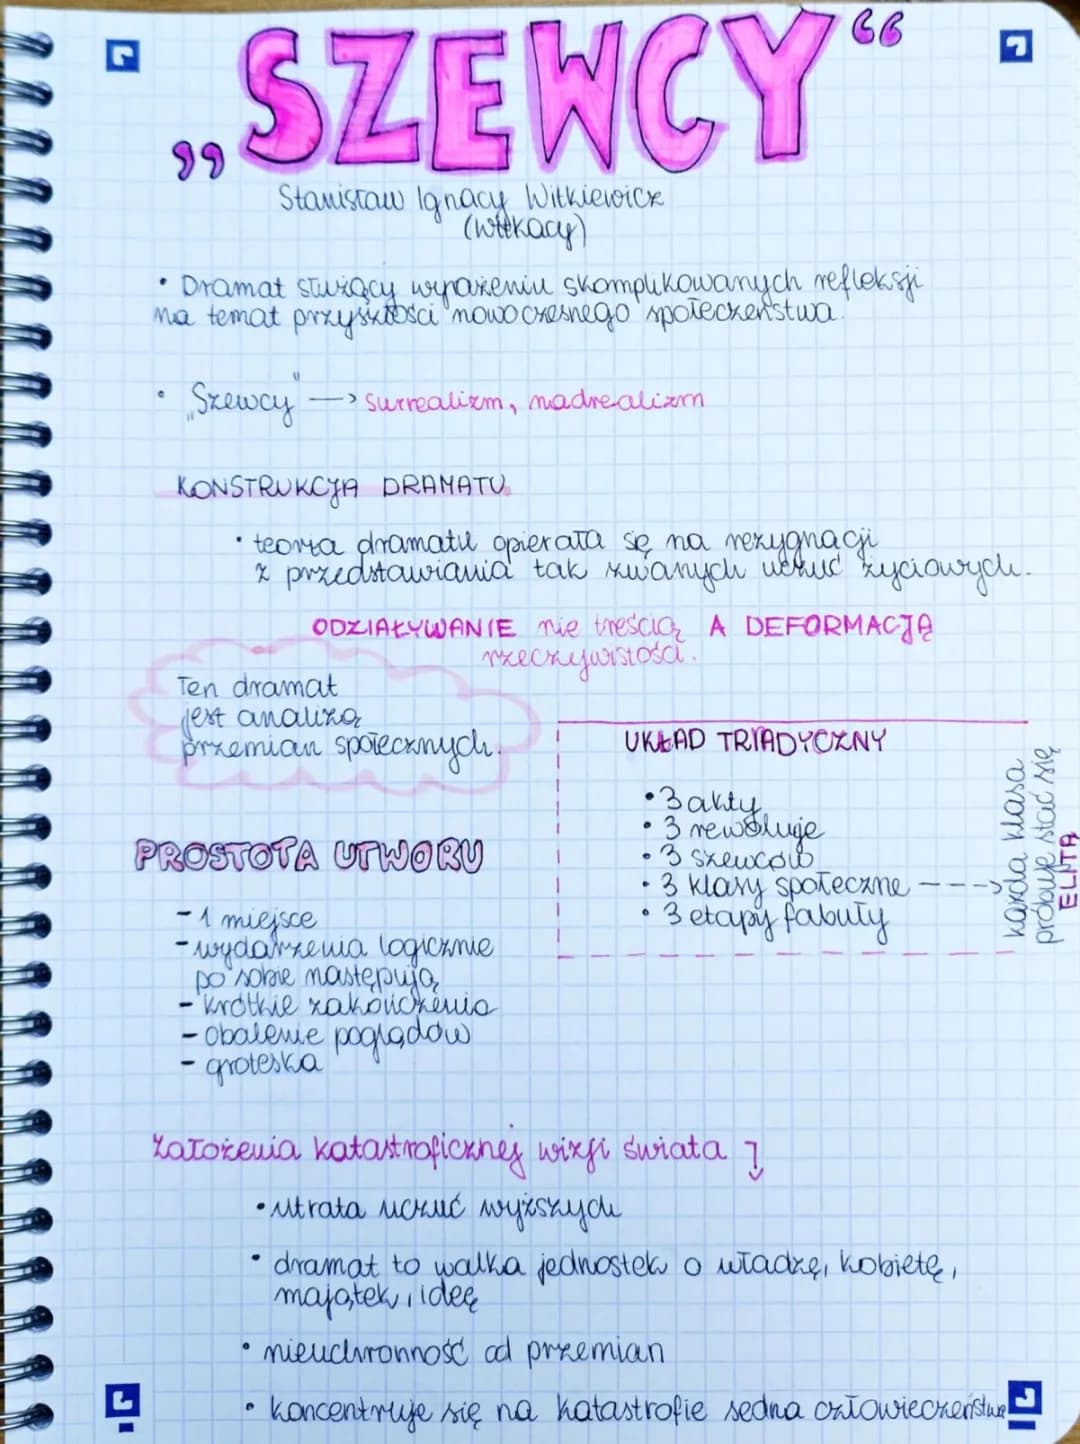 „SZEWCY“
Stanisław Ignacy Witkiewicz
(Witkacy)
• Dramat służący wyrażeniu skomplikowanych refleksji
na temat przyszłości nowoczesnego społeczeństwa.
• „Szewcy" —> surrealizm, nadrealizm
KONSTRUKCJA DRAMATU
• teoria dramatu opierała się na rezygnacji
z przedstawiania tak zwanych uczuć życiowych.
ODZIAŁYWANIE nie treścią A DEFORMACJĄ
rzeczywistości.
Ten dramat
jest analizą
przemian społecznych.
UKŁAD TRIADYCZNY
• 3 akty
• 3 rewolucje
• 3 szewców
• 3 klasy społeczne - - - ->
• 3 etapy fabuły
każda klasa
próbuje stać się
ELITĄ
PROSTOTA UTWORU
- 1 miejsce
- wydarzenia logicznie
po sobie następują
- krótkie zakończenia
- obalenie poglądów
- groteska
Założenia katastroficznej wizji świata
• utrata uczuć wyższych
• dramat to walka jednostek o władzę, kobietę,
majątek, ideę
• nieuchronność od przemian
• koncentruje się na katastrofie sedna człowieczeństwa